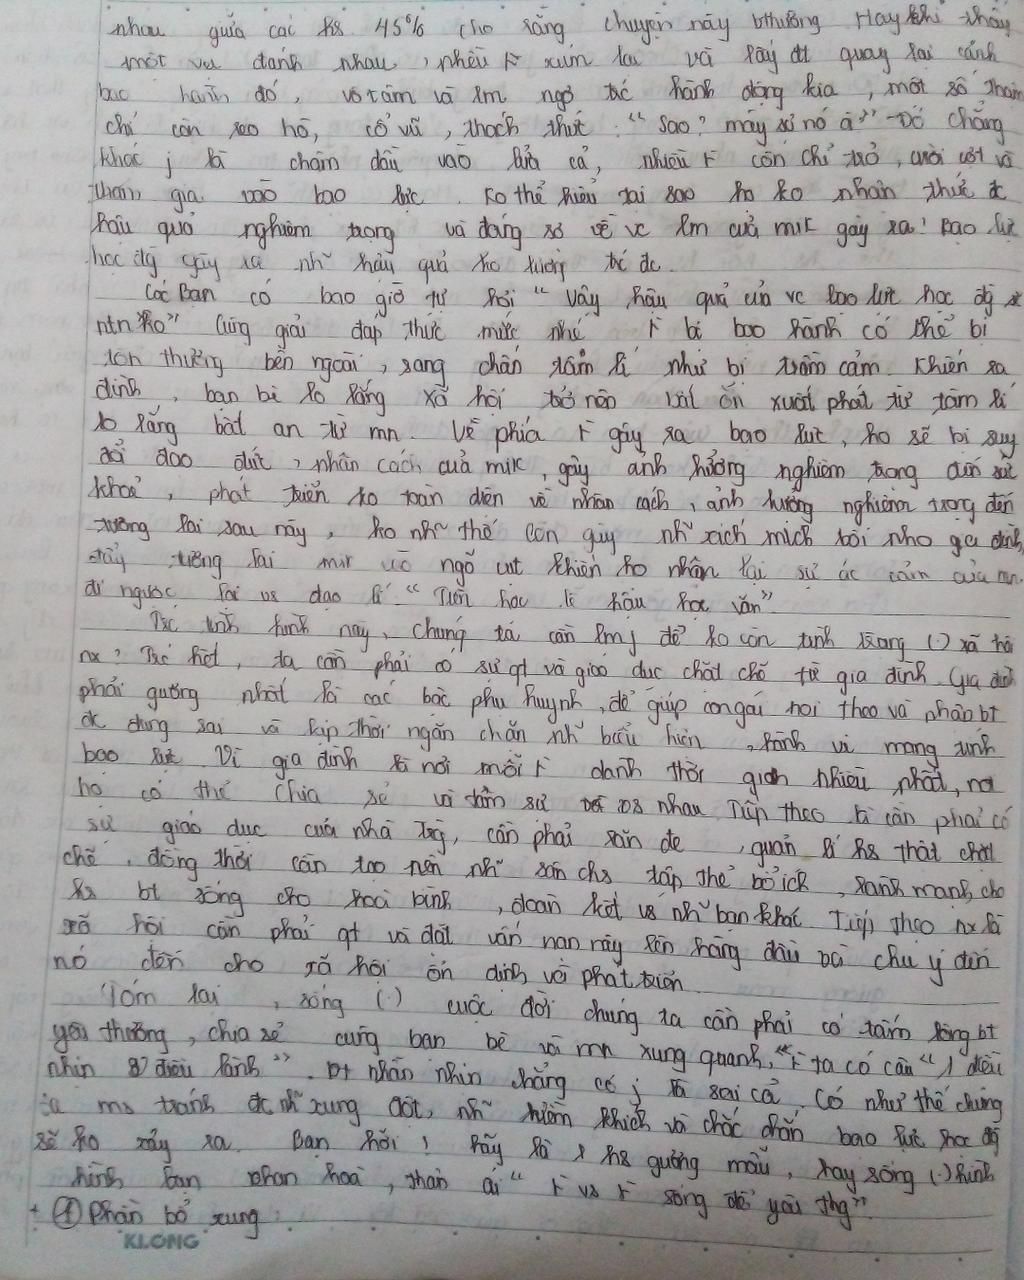 nhau giữa các hs 45% cho rằng chuyện này bthường Hay khi thấy
một vụ đánh nhau, nhều F xúm lại và lấy đt quay lại cảnh
bạo hành đó, vô tâm và lm ngơ trc hành động kia, một số thậm
chí còn reo hò, cổ vũ, thách thức: "Sao? mày sợ nó à" Đó chẳng
khác j là châm dầu vào lửa cả, nhiều F còn chỉ trỏ, cười cợt và
tham gia vào bạo lực. Ko thể hiểu tại sao họ ko nhận thức đc
hậu quả nghiêm trọng và đáng sợ về vc lm của mik gây ra! Bạo lực
học đg gây ra nh~ hậu quả ko lường trc đc.
Các Bạn có bao giờ tự hỏi "Vậy hậu quả của vc bạo lực học đg
ntn ko" Cùng giải đáp thức mức nhé F bị bạo hành có thể bị
tổn thương bên ngoài, sang chấn tâm lí như bị trầm cảm khiến ra
đình, bạn bè lo lắng xã hội trở nên bất ổn xuất phát từ tâm lí
lo lắng bất an từ mn. Về phía F gây ra bạo lực, họ sẽ bị suy
đồi đạo đức, nhân cách của mik, gây ảnh hưởng nghiêm trọng đến sức
khoẻ, phát triển ko toàn diện về nhân cách, ảnh hưởng nghiêm trọng đến
tương lai sau này, ko nh~ thế còn gây nh~ xích mích bôi nhọ gia đình,
đẩy tương lai mik vào ngõ cụt khiến họ nhận lại sự ác cảm của mn.
đi ngược lại vs đạo lí "Tiên học lễ hậu học văn"
Trc tình hình này, chúng ta cần lm j để ko còn tình trạng (.) xã hội
nx? Trc hết, ta cần phải có sự qt và giáo dục chặt chẽ từ gia đình. Gia đình
phải gương nhất là các bậc phụ huynh, để giúp con gái noi theo và nhận bt
đc đúng sai và kịp thời ngăn chặn nh~ biểu hiện, hành vi mang tính
bạo lực Vì gia đình là nơi mỗi F dành thời gian nhiều nhất, nơi
họ có thể chia sẻ và tâm sự vs nhau, Tiếp theo là cần phải có
sự giáo dục của nhà trg, cần phải răn đe, quản lí hs thật chặt
chẽ, đồng thời cần tạo nên nh~ sân chs tập thể bổ ích, lành mạnh, cho
hs bt sống cho hoà bình, đoàn kết vs nh~ bạn khác Tiếp theo nx là
xã hội cần phải qt và đặt vấn nạn này lên hàng đầu và chú ý đến
nó đến cho xã hội ổn định và phát triển
Tóm lại, sống (.) cuộc đời chúng ta cần phải có tấm lòng bt
yêu thương, chia sẻ cùng bạn bè và mn xung quanh, "F ta có câu "1 điều
nhịn 9 điều lành". Bt nhẫn nhịn chẳng có j là sai cả. Có như thế chúng
ta ms tránh đc nh~ xung đột, nh~ hiềm khích và chắc chắn bạo lực học đg
sẽ ko xảy ra. Bạn hỡi! hãy là 1 hs gương mẫu, hãy sống (.) hình
thân ái "F vs F sống để yêu thg"
+ ① Phần bổ xung
KLONG